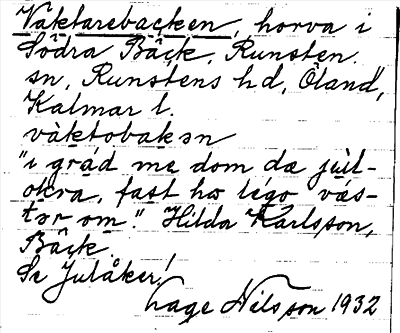 Vaktarebacken, horva i
Södra Bäck, Runsten
sn, Runstens hd, Öland,
Kalmar l.
vaktobakən
"i grad me dom dæ jul-
okra, fast hæ legə väs-
tər om." Hilda Karlsson,
Bäck
Se Julåker!
Lage Nilsson 1932